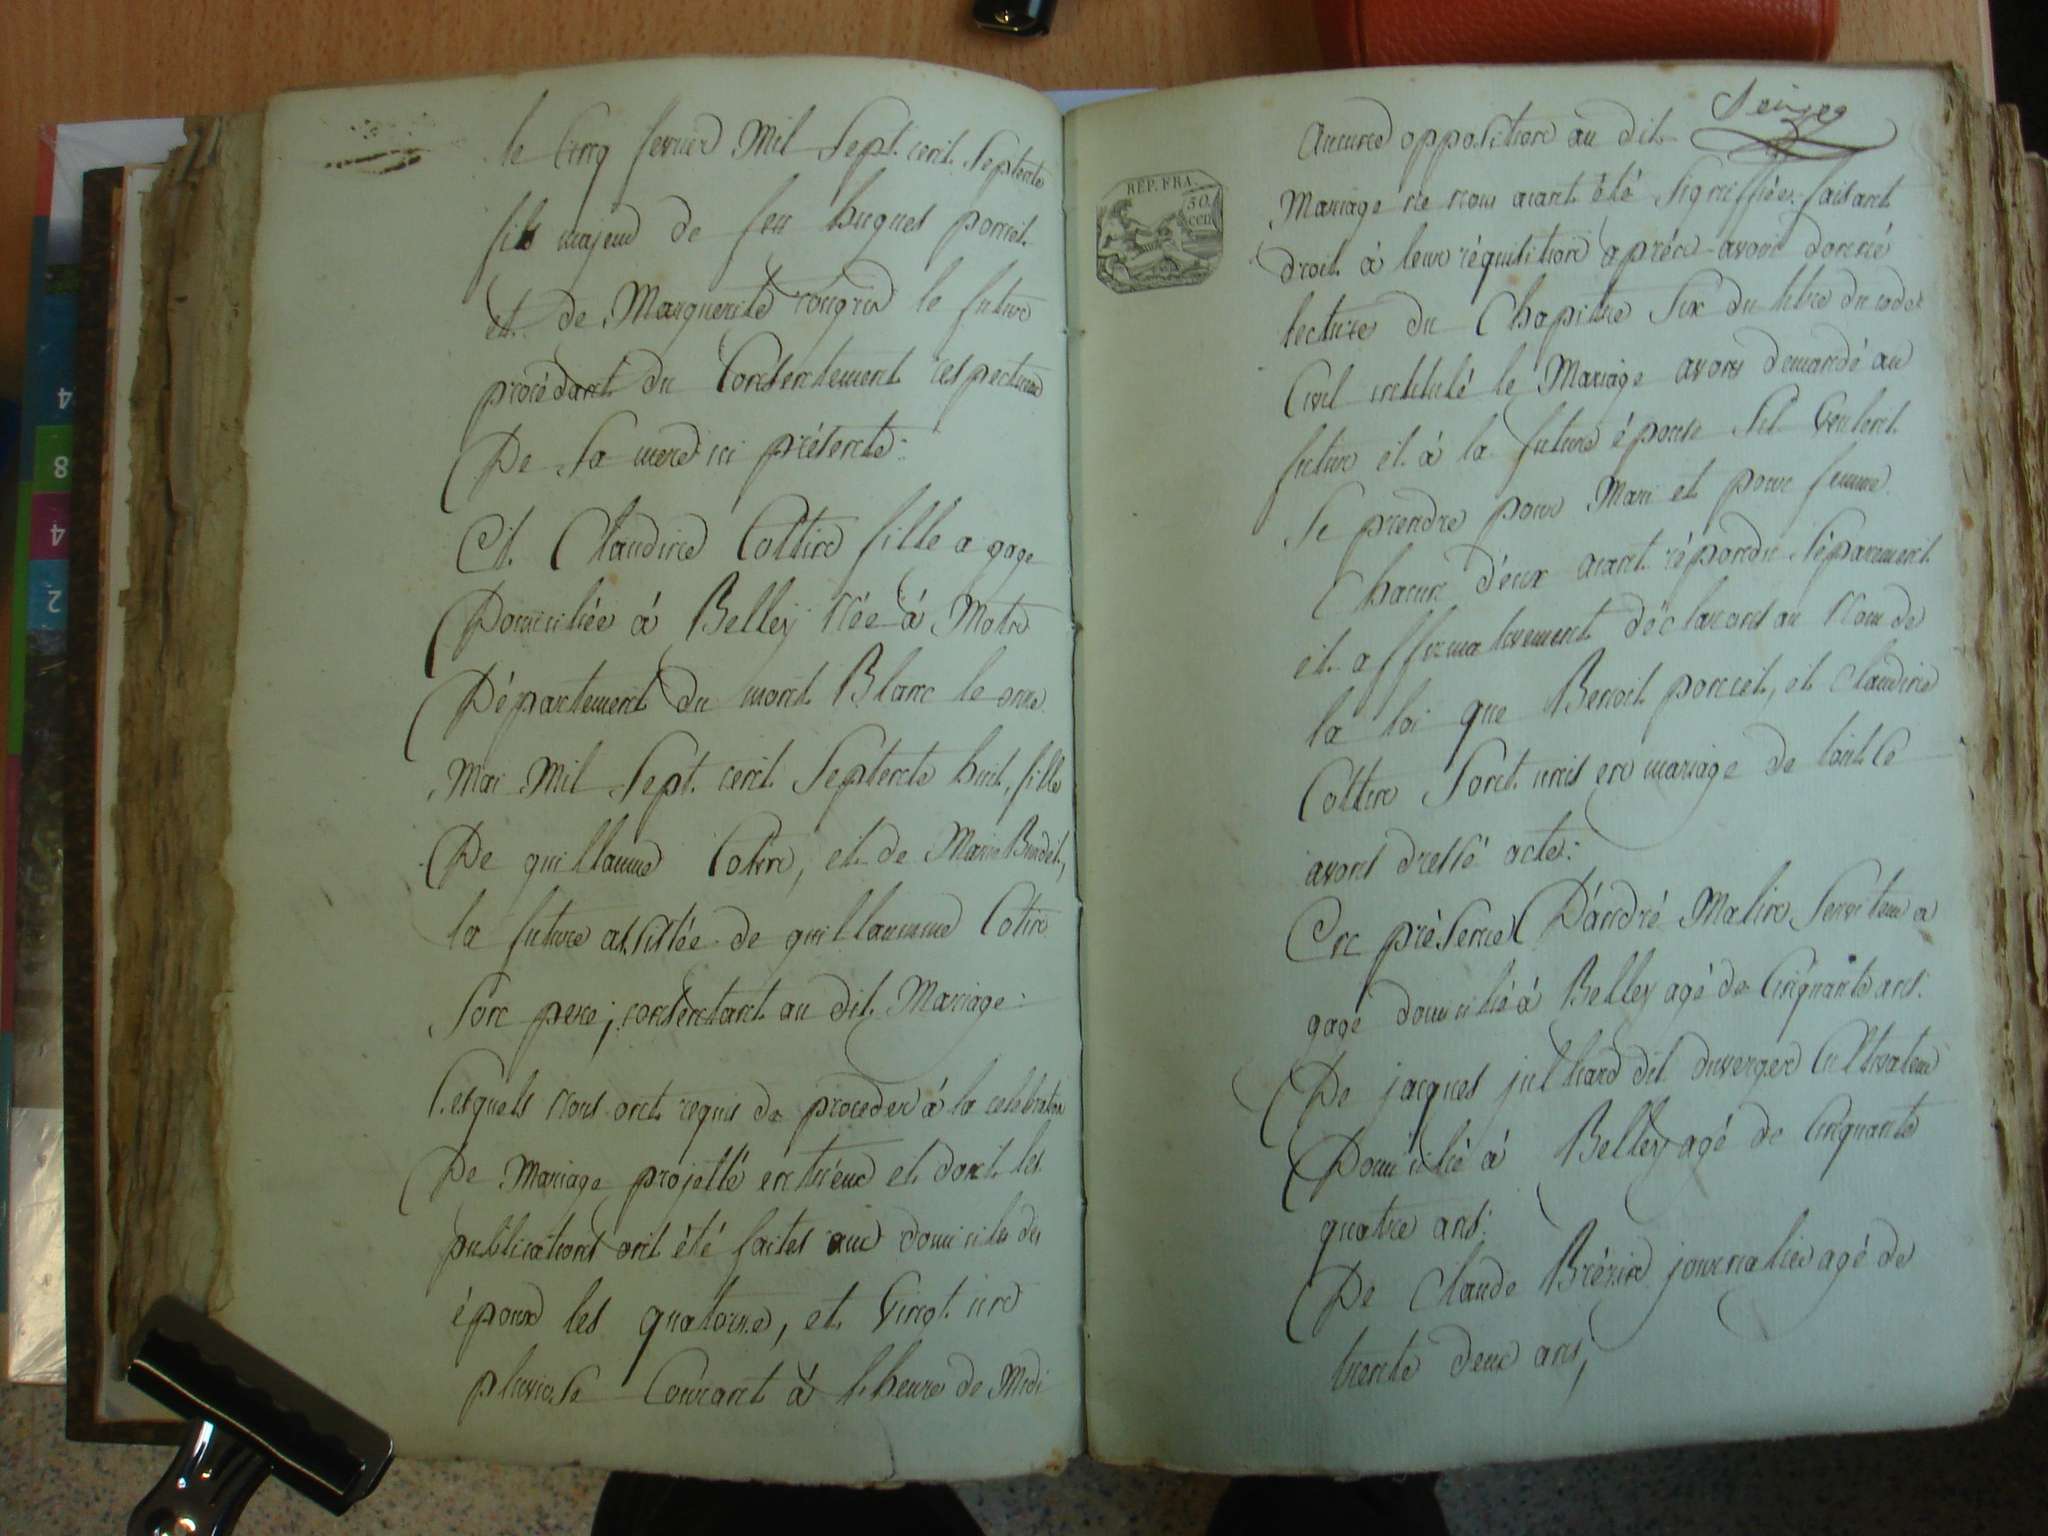 le Cinq fevrier Mil Sept. cent. Septente
fils majeur de feu hugues poncet
et. de Marguerite le future
procédant du Consentement respectueux
De Sa mere ici présente:
Et. Claudine Cottin fille a gage
Domiciliée à Belley Née à Motre
Département du mont Blanc le onze
Mai Mil Sept. cent Septente huit, fille
De guillaume Cotin, et de Marie Bredet,
la future assistée de guillaumme Cotin
Son pere; consentant au dit Mariage:
Lesquels Nous ont requis de proceder à la celebration
De Mariage projetté entr'eux et dont les
publications ont été faites aux domiciles des
époux les quatorze, et Vingt un
pluviose Courant à l'heure de Midi
Aucune opposition au dit
REP. FRA.
50.
cen
Mariage ne nous aiant été Signiffiée faisant
droit à leur réquisition après avoir donné
lecture du Chapitre Six du titre du code
Civil intitulé le Mariage avons demandé au
futur et à la future épouse Sil Veulent
Se prendre pour Mari et pour femme
Chacun d'eux aiant répondu Séparement
et affirmativement déclarons au Nom de
la loi que Benoit poncet, et Claudine
Cottin Sont unis en mariage de tout ce
avons dressé acte:
En présence D'andré Matin Serviteur a
gage domicilié à Belley agé de Cinquante ans:
De jacques julliard dit duverger Cultivateur
Domicilié à Belley agé de Cinquante
quatre ans:
De Claude Brézin journalier agé de
trente deux ans,
4
8
4
2